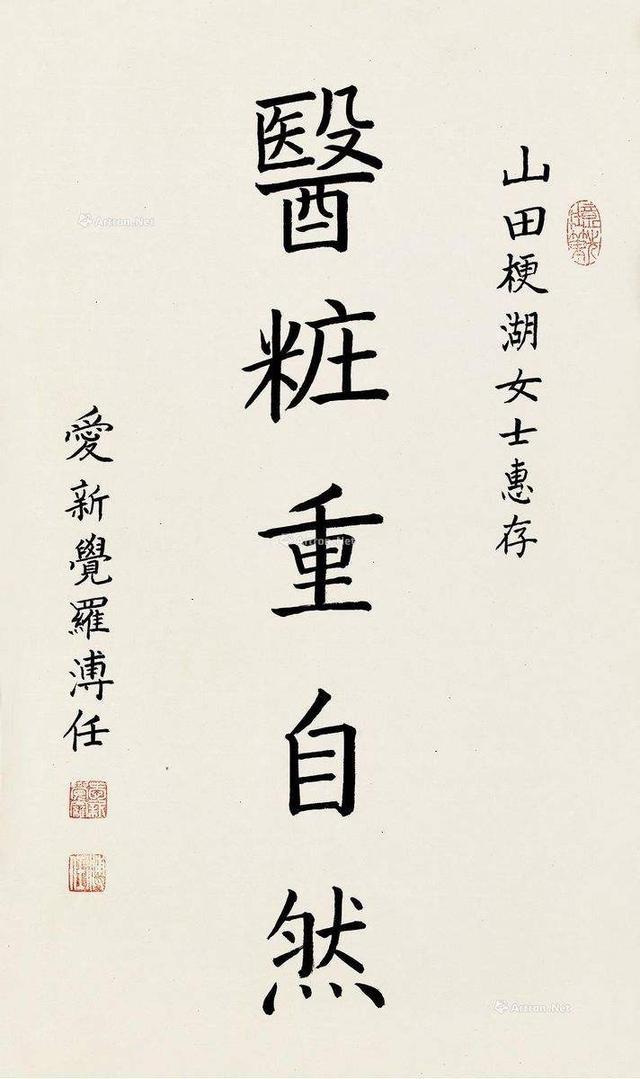 山田梗湖女士惠存
醫粧重自然
愛新覺羅溥任
愛新覺羅
溥任
Artron.Net
Artron.Net
Artron.Net